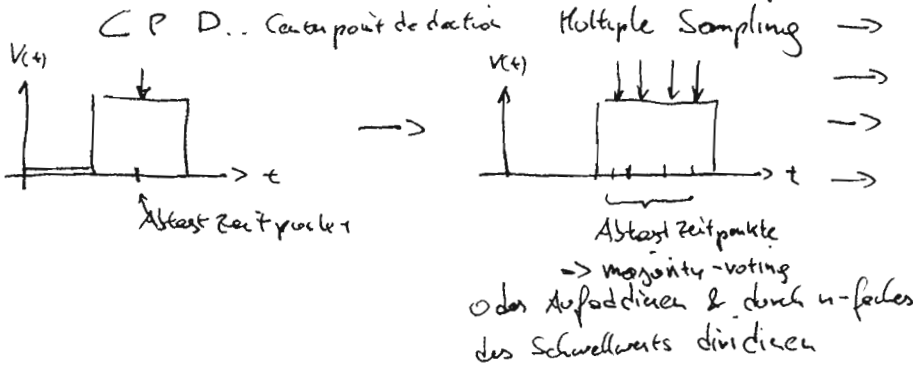 C P D.. Centerpoint detection
Multiple Sampling →
V(t)
V(t)
t
t
Abtastzeitpunkt
Abtastzeitpunkte
-> majority-voting
Oder Aufaddieren & durch n-faches
des Schwellwerts dividieren